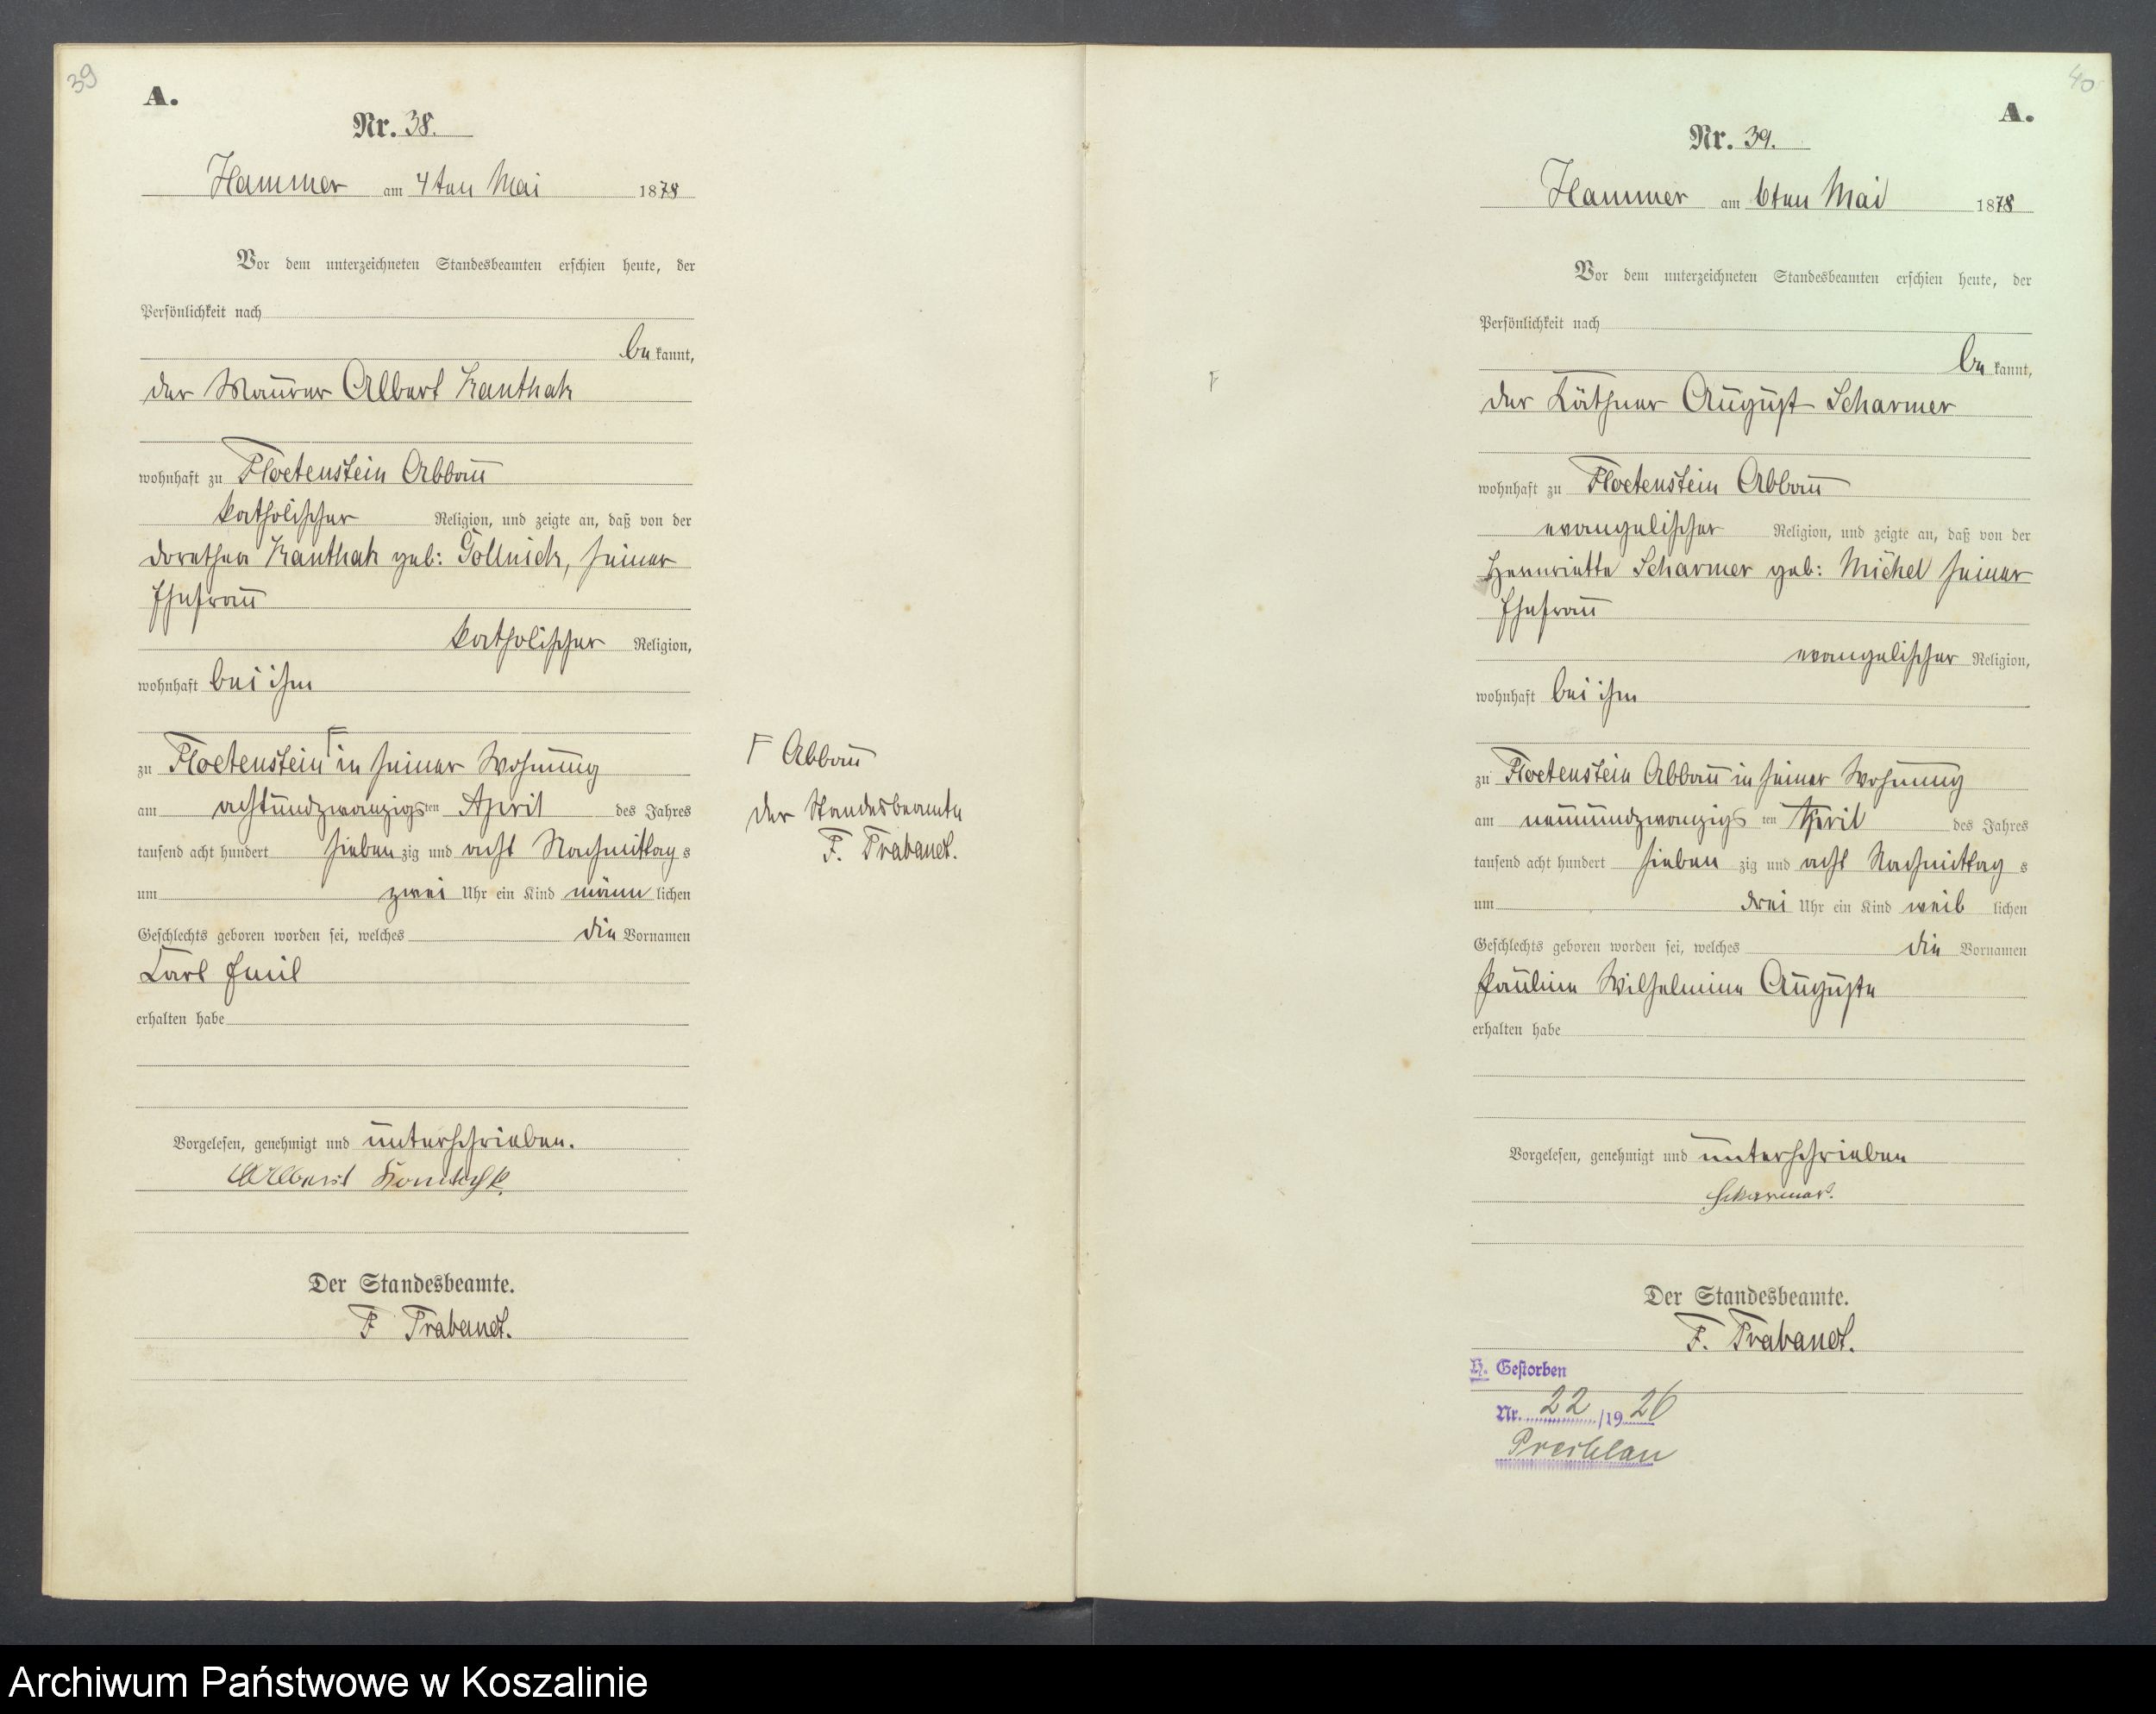 39
A.
Nr. 38.
Hammer am 4ten Mai 1878
Vor dem unterzeichneten Standesbeamten erschien heute, der
Persönlichkeit nach
be kannt,
der Maurer Albert Kanthak
wohnhaft zu Floetenstein Abbau
katholischer Religion, und zeigte an, daß von der
Dorothea Kanthak geb: Gollnick, seiner
Ehefrau
katholischer Religion,
wohnhaft bei ihm
zu Floetenstein F in seiner Wohnung
am achtundzwanzigsten April des Jahres
tausend acht hundert sieben zig und acht Nachmittags
um zwei Uhr ein Kind männ lichen
Geschlechts geboren worden sei, welches die Vornamen
Carl Emil
erhalten habe
Vorgelesen, genehmigt und unterschrieben.
Albert
Der Standesbeamte.
F Trabandt.
F Abbau
Der Standesbeamte
F. Trabandt.
40
A.
Nr. 39.
Hammer am 6ten Mai 1878
Vor dem unterzeichneten Standesbeamten erschien heute, der
Persönlichkeit nach
be kannt,
F
der Käthner August Scharmer
wohnhaft zu Floetenstein Abbau
evangelischer Religion, und zeigte an, daß von der
Hennriette Scharmer geb: Michel seiner
Ehefrau
evangelischer Religion,
wohnhaft bei ihm
zu Floetenstein Abbau in seiner Wohnung
am neunundzwanzigs ten April des Jahres
tausend acht hundert sieben zig und acht Nachmittag s
um drei Uhr ein Kind weib lichen
Geschlechts geboren worden sei, welches die Vornamen
Pauline Wilhelmine Auguste
erhalten habe
Vorgelesen, genehmigt und unterschrieben
Scharmer.
Der Standesbeamte.
F. Trabandt.
H. Gestorben
Nr. 22 /1926
Archiwum Państwowe w Koszalinie